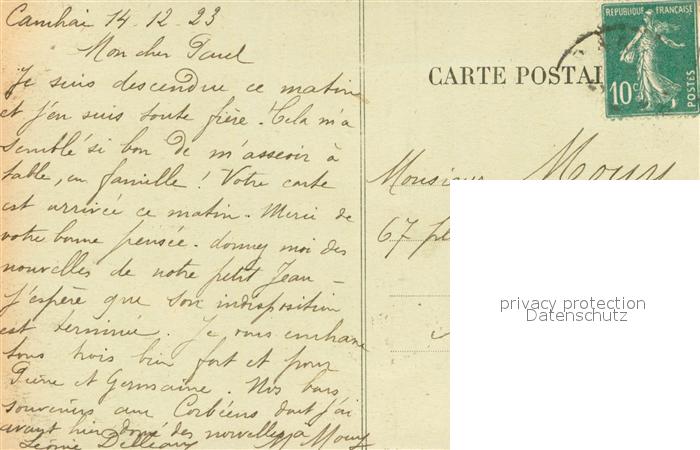 Cambrai 14.12.23
Mon cher Paul
Je suis descendue ce matin
et j'en suis toute fière. Cela m'a
semblé si bon de m'asseoir à
table, en famille ! Votre carte
est arrivée ce matin. Merci de
votre bonne pensée. donnez moi des
nouvelles de notre petit Jean -
J'espère que son indisposition
est terminée. Je vous embrasse
tous trois bien fort et pour
Pierre et Germaine. Nos bons
souvenirs aux Corbéens dont j'ai
avant hier donné des nouvelles à M Mouy
Léonie
CARTE POSTAL
REPUBLIQUE FRANÇAISE
10c
POSTES
Monsieur Mouy
67
privacy protection
Datenschutz